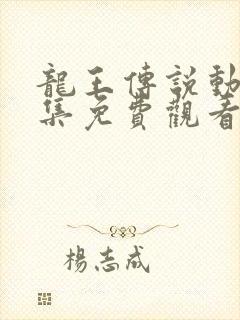 龍王傳説動
集免費觀看
楊志成